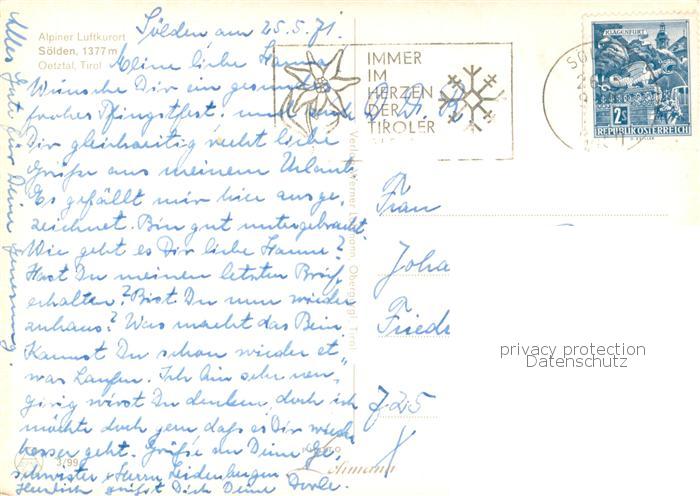 Alpiner Luftkurort
Sölden, 1377 m
Oetztal, Tirol
Sölden am 25.5.71.
Meine liebe Hanne,
Wünsche Dir ein gesundes
frohes Pfingstfest. und
Dir gleichzeitig recht liebe
Grüße aus meinem Urlaub.
Es gefällt mir hier ausge,
zeichnet. Bin gut untergebracht.
Wie geht es Dir liebe Hanne?
Hast Du meinen letzten Brief
erhalten? Bist Du nun wieder
zuhaus? Was macht das Bein.
Kannst Du schon wieder et,
was Laufen. Ich bin sehr neu,
girig wirst Du denken, doch ich
möchte doch gern daß es Dir wieder
besser geht. Grüße an Deine Ge,
schwister + Herrn Leidenberger
Herzlich grüßt Dich Deine
Alles Gute für Deine Genesung.
IMMER
IM
HERZEN
DER
TIROLER
KLAGENFURT
2 S
REPUBLIK ÖSTERREICH
Verlag Werner Lohmann, Obergurgl, Tirol
Frau
Joha
Friedr
725
privacy protection
Datenschutz
3/99
Lohmann